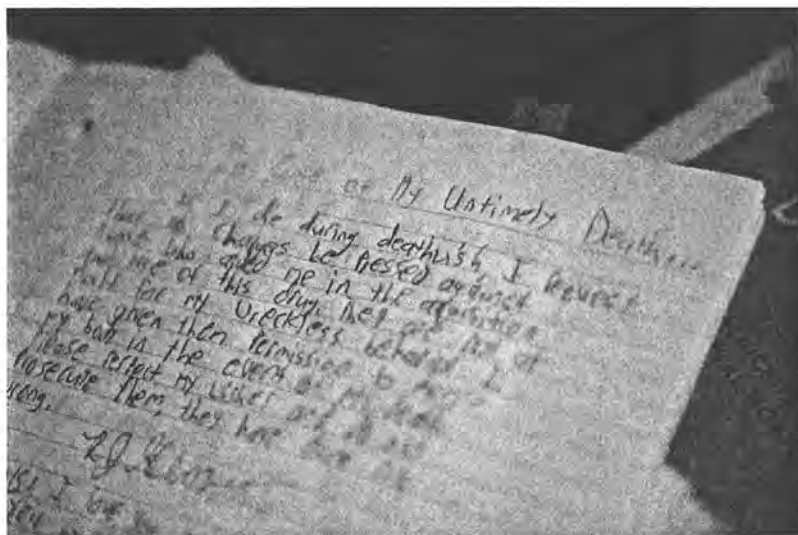 of My Untimely Death....
I die during deathwish, I request
that no charges be pressed against
those who aided me in the aquisition
of this drug. they are not at
fault for my wreckless behavior I
have given them permission to
my body in the event of my death
Please respect my wishes and do not
prosecute them, they have done no
wrong.
I love you